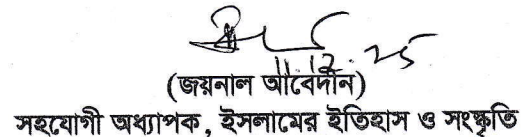 11.12.25
(জয়নাল আবেদীন)
সহযোগী অধ্যাপক, ইসলামের ইতিহাস ও সংস্কৃতি